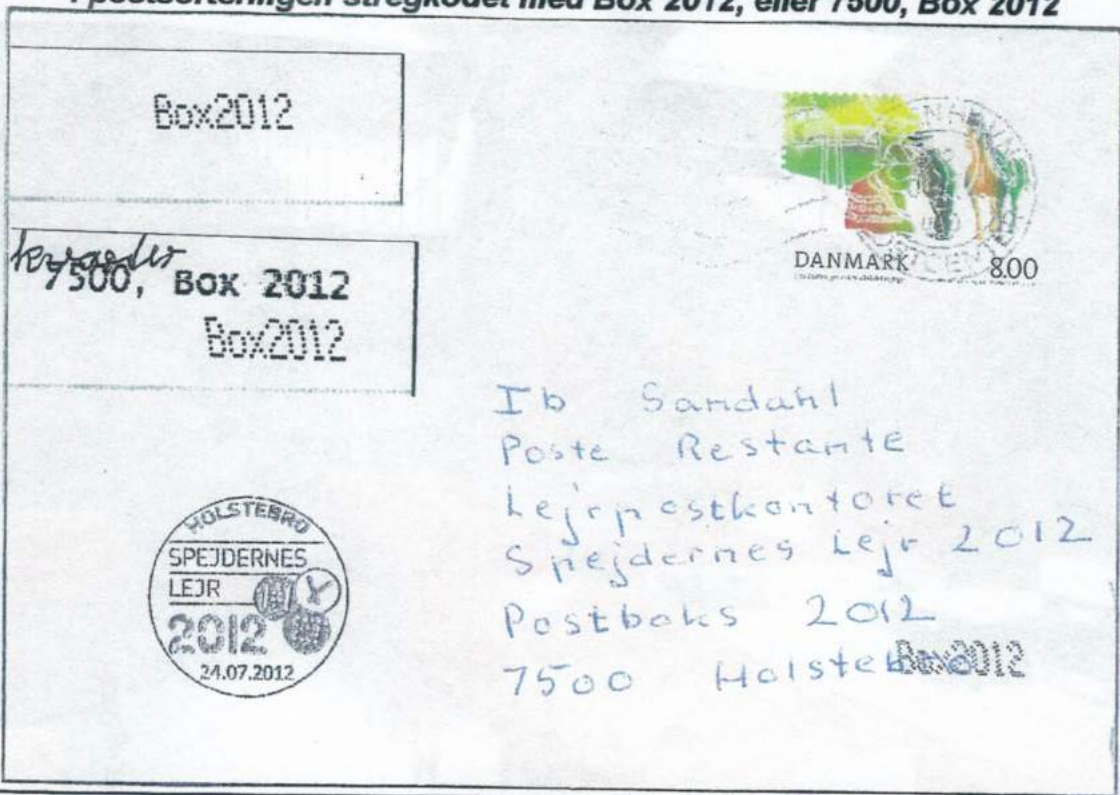 I postsorteringen stregkodet med Box 2012, eller 7500, Box 2012
Box2012
7500, Box 2012
Box2012
DANMARK 8.00
Ib Sandahl
Poste Restante
Lejrpostkontoret
Spejdernes Lejr 2012
Postboks 2012
7500 Holstebro
Box2012
HOLSTEBRO
SPEJDERNES
LEJR
2012
24.07.2012